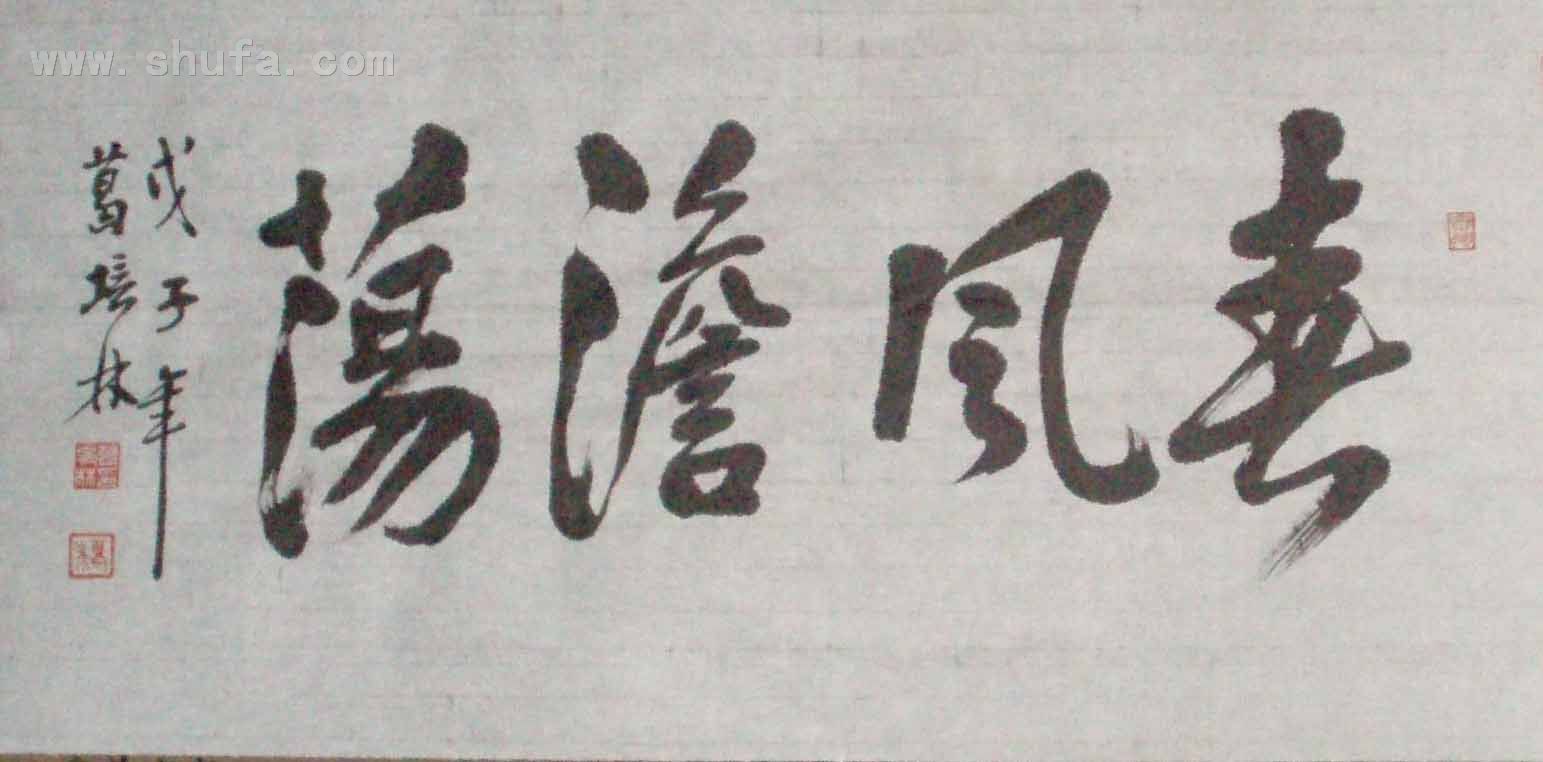 www.shufa.com
春風澹蕩
戊子年
葛培林